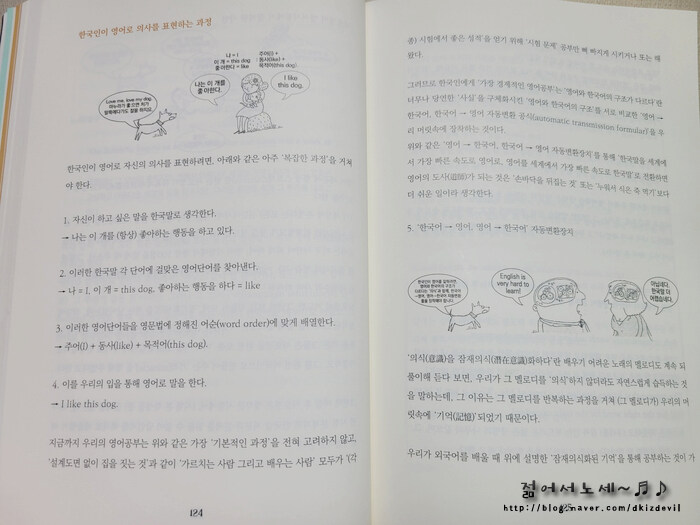 한국인이 영어로 의사를 표현하는 과정
나 = I
이 개 = this dog
좋아한다 = like
주어(I) +
동사(like) +
목적어(this dog)
나는 이 개를
좋아한다.
I like
this dog.
Love me, love my dog.
한국인이 영어로 자신의 의사를 표현하려면, 아래와 같은 아주 '복잡한 과정'을 거쳐
야 한다.
1. 자신이 하고 싶은 말을 한국말로 생각한다.
→ 나는 이 개를 (항상) 좋아하는 행동을 하고 있다.
2. 이러한 한국말 각 단어에 걸맞은 영어단어를 찾아낸다.
→ 나 = I, 이 개 = this dog, 좋아하는 행동을 하다 = like
3. 이러한 영어단어들을 영문법에 정해진 어순(word order)에 맞게 배열한다.
→ 주어(I) + 동사(like) + 목적어(this dog).
4. 이를 우리의 입을 통해 영어로 말을 한다.
→ I like this dog.
지금까지 우리의 영어공부는 위와 같은 가장 '기본적인 과정'을 전혀 고려하지 않고,
'설계도면 없이 집을 짓는 것'과 같이 '가르치는 사람 그리고 배우는 사람' 모두가 '(각
124
종) 시험에서 좋은 성적'을 얻기 위해 '시험 문제' 공부만 뼈 빠지게 시키거나 또는 해
왔다.
그러므로 한국인에게 '가장 경제적인 영어공부'는 '영어와 한국어의 구조가 다르다'란
너무나 당연한 '사실'을 구체화시킨 '영어와 한국어의 구조'를 서로 비교한 '영어 →
한국어, 한국어 → 영어 자동변환 공식(automatic transmission formular)'을 우
리 머릿속에 장착하는 것이다.
위와 같은 '영어 → 한국어, 한국어 → 영어 자동변환장치'를 통해 '한국말을 세계에
서 가장 빠른 속도로 영어로, 영어를 세계에서 가장 빠른 속도로 한국말'로 전환하면
영어의 도사(道師)가 되는 것은 '손바닥을 뒤집는 것' 또는 '누워서 식은 죽 먹기'보다
더 쉬운 일이라 생각한다.
5. '한국어 → 영어, 영어 → 한국어' 자동변환장치
English is
very hard to
learn!
아닙네다.
한국말 더
어렵습네다.
'의식(意識)을 잠재의식(潛在意識)화하다'란 배우기 어려운 노래의 멜로디도 계속 되
풀이해 듣다 보면, 우리가 그 멜로디를 '의식'하지 않더라도 자연스럽게 습득하는 것
을 말하는데, 그 이유는 그 멜로디를 반복하는 과정을 거쳐 (그 멜로디가) 우리의 머
릿속에 '기억(記憶)'되었기 때문이다.
우리가 외국어를 배울 때 위에 설명한 '잠재의식화된 기억'을 통해 공부하는 것이 가
젊어서노세~♬♪
http://blog.naver.com/dkizdevil